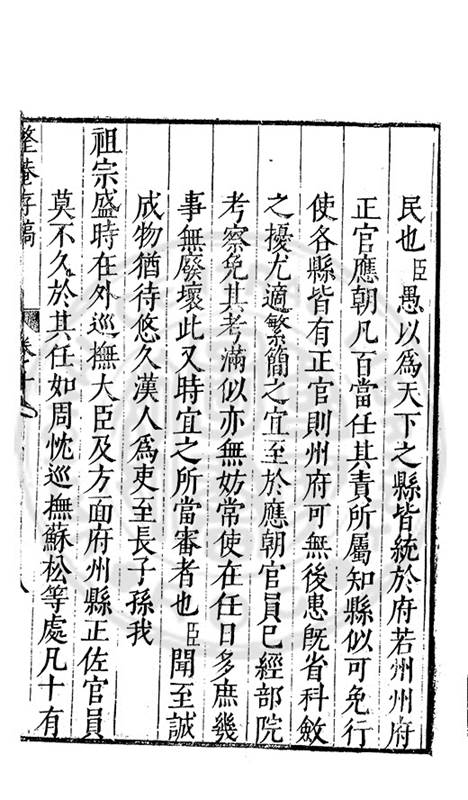 民也臣愚以爲天下之縣皆統於府若州州府
正官應朝凡百當任其責所屬知縣似可免行
使各縣皆有正官則州府可無後患旣省科斂
之擾尤適繁簡之宜至於應朝官員已經部院
考察免其考滿似亦無妨常使在任日多庶幾
事無廢壞此又時宜之所當審者也臣聞至誠
成物猶待悠久漢人爲吏至長子孫我
祖宗盛時在外巡撫大臣及方面府州縣正佐官員
莫不久於其任如周忱巡撫蘇松等處凡十有
整菴存稿
卷之十